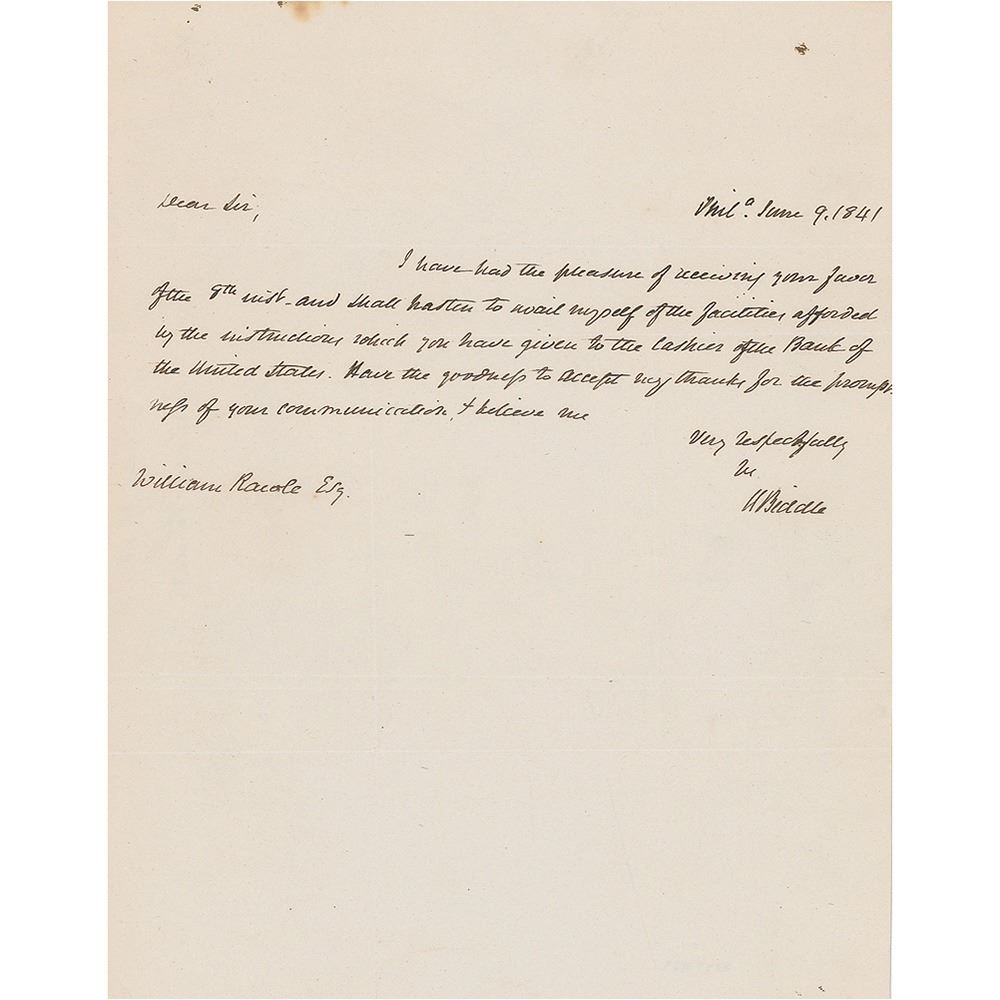 Dear Sir,
Phil.ª June 9. 1841
I have had the pleasure of receiving your favor
of the 8th inst. and shall hasten to avail myself of the facilities afforded
by the instructions which you have given to the Cashier of the Bank of
the United States. Have the goodness to accept my thanks for the prompt-
ness of your communication, & believe me
Very respectfully
Yrs
N Biddle
William Rawle Esq.